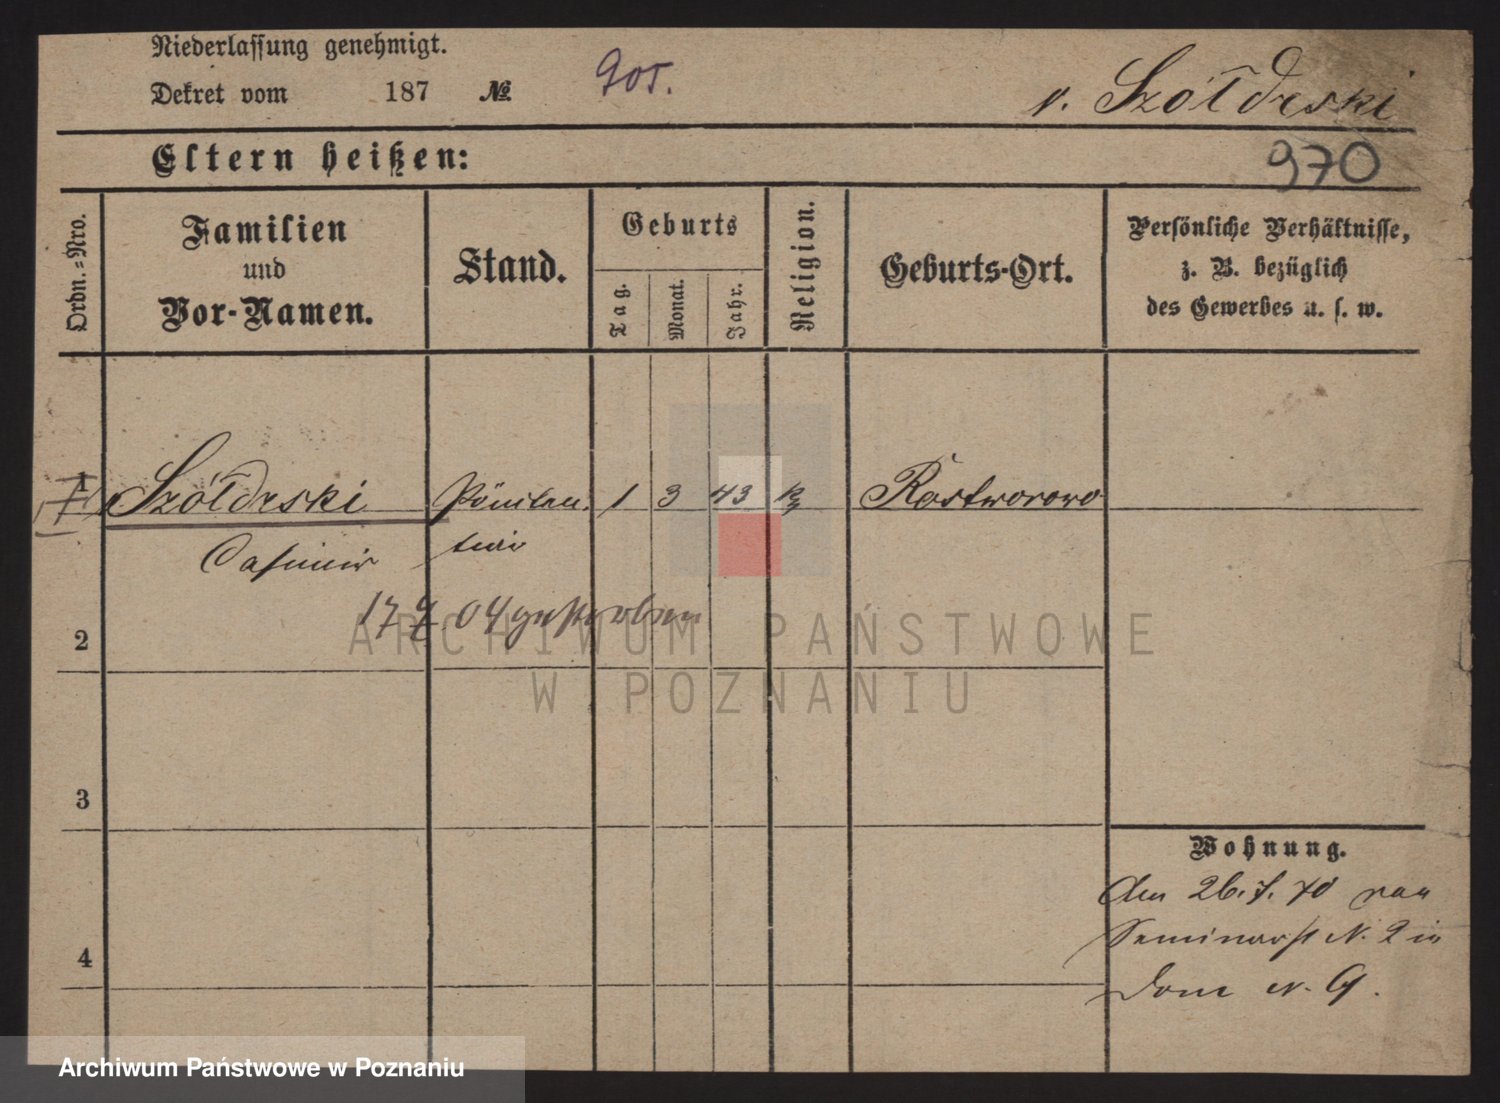 Niederlassung genehmigt.
Dekret vom 187 № 905.
v. Szółdrski
970
Eltern heißen:
Ordn.-Nro.
Familien und Vor-Namen.
Stand.
Geburts
Tag.
Monat.
Jahr.
Religion.
Geburts-Ort.
Persönliche Verhältnisse,
z. B. bezüglich
des Gewerbes u. s. w.
1 v Szółdrski Pöniten- 1 3 43 k Rostworowo
Casimir tiar
17 04 gestorben
2
3
4
Wohnung.
Am 26. 7. 70 von
Seminarst N. 2 in
Dom N. 9.
ARCHIWUM PAŃSTWOWE
W POZNANIU
Archiwum Państwowe w Poznaniu